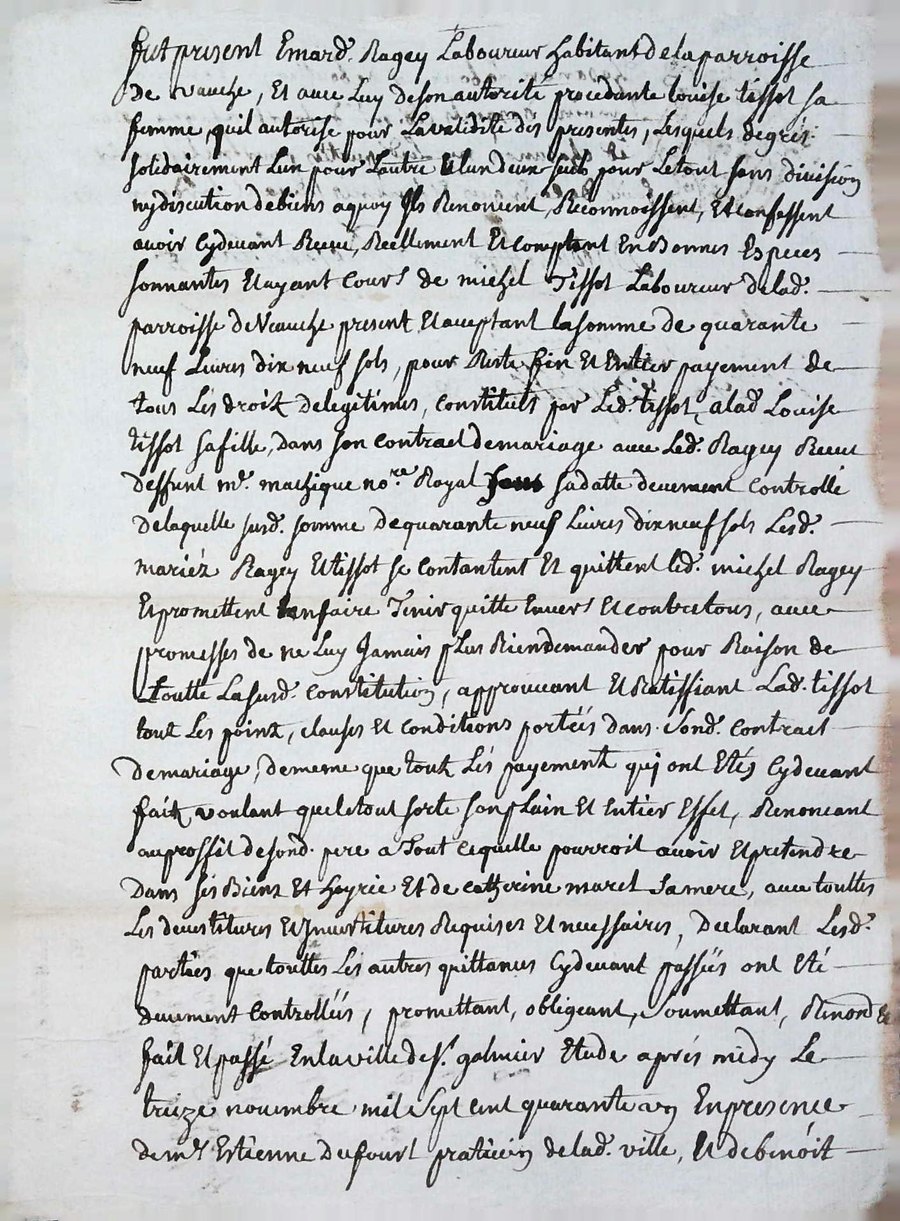 fut present Emard Ragey Laboureur habitant de la parroisse
de veauche, Et avec Luy de son autorité procedante louise tissot sa
femme, quil autorise pour La validité des presentes, Lesquels de gréz
solidairement L'un pour L'autre Et lun deux seul pour Le tout sans division
ny discution de biens a quoy Ils Renoncent, Reconnoissent, Et confessent
avoir Cydevant Receu, Reellement Et comptant En Bonnes Especes
sonnantes Et ayant Cours de michel Tissot Laboureur de lad.
parroisse de Veauche present Et aceptant la somme de quarante
neuf Livres dix neuf sols, pour Reste fin Et Entier payement de
tous Les droit de legitimes, constitués par Led. tissot, a lad Louise
tissot sa fille, dans son contract de mariage avec Led. Ragey Receu
deffunt me. machique nore. Royal sous sa datte deuement Controllé
de laquelle susd. somme de quarante neuf Livres dix neuf sols Lesd.
mariéz Ragey Et tissot se Contantent Et quittent led. michel Ragey
Et promettent Len faire Tenir quitte Envers Et contre tous, avec
promesses de ne Luy Jamais plus Rien demander pour Raison de
Toutte La susd. Constitution, approuvant Et Ratiffiant Lad. tissot
tout Les point, clauses Et conditions portéés dans Sond. Contract
de mariage, de meme que tout Lés payement qui ont Etés Cydevant
fait, voulant que le tout sorte son plain Et Entier Effet, Renoncant
au proffit de sond. pere a Tout ce quelle pourroit avoir Et pretendre
Dans sés Biens Et hoyrie Et de catherine maret Sa mere, avec touttes
Les devestitures Et Investitures Requises Et necessaires, Declarant Lesd.
parties que touttes Les autres quittances Cydevant passéés ont Eté
deuement Controlléés, promettant, obligeant, Soumettant, Renond &
fait Et passé En la ville de St. galmier Etude aprés midy Le
treize novembre mil Sept cent quarante un En presence
de me Estienne Dufour praticien de lad. ville, Et de benoit